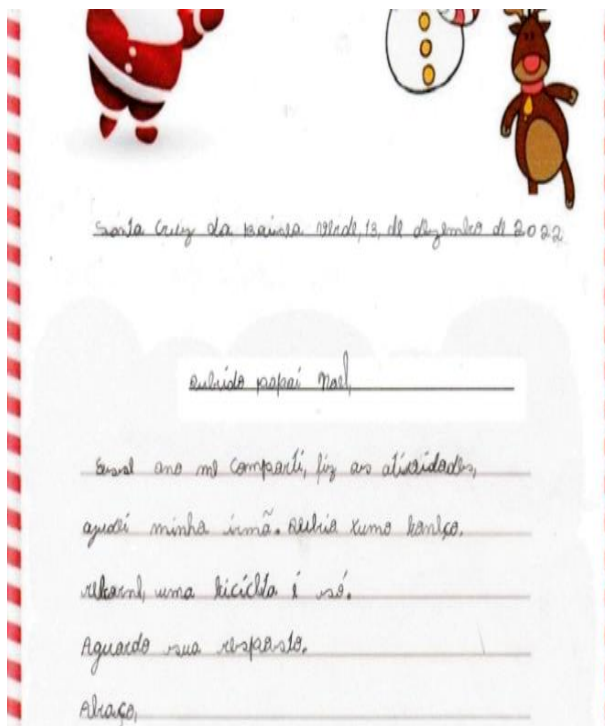 Santa Cruz da Baixa Verde, 13, de dezembro de 2022
papai Noel,
ano me comparti, fiz as atividades,
ajudei minha irmã. boneca,
uma bicicleta é só.
Aguardo sua resposta.
Abraço,